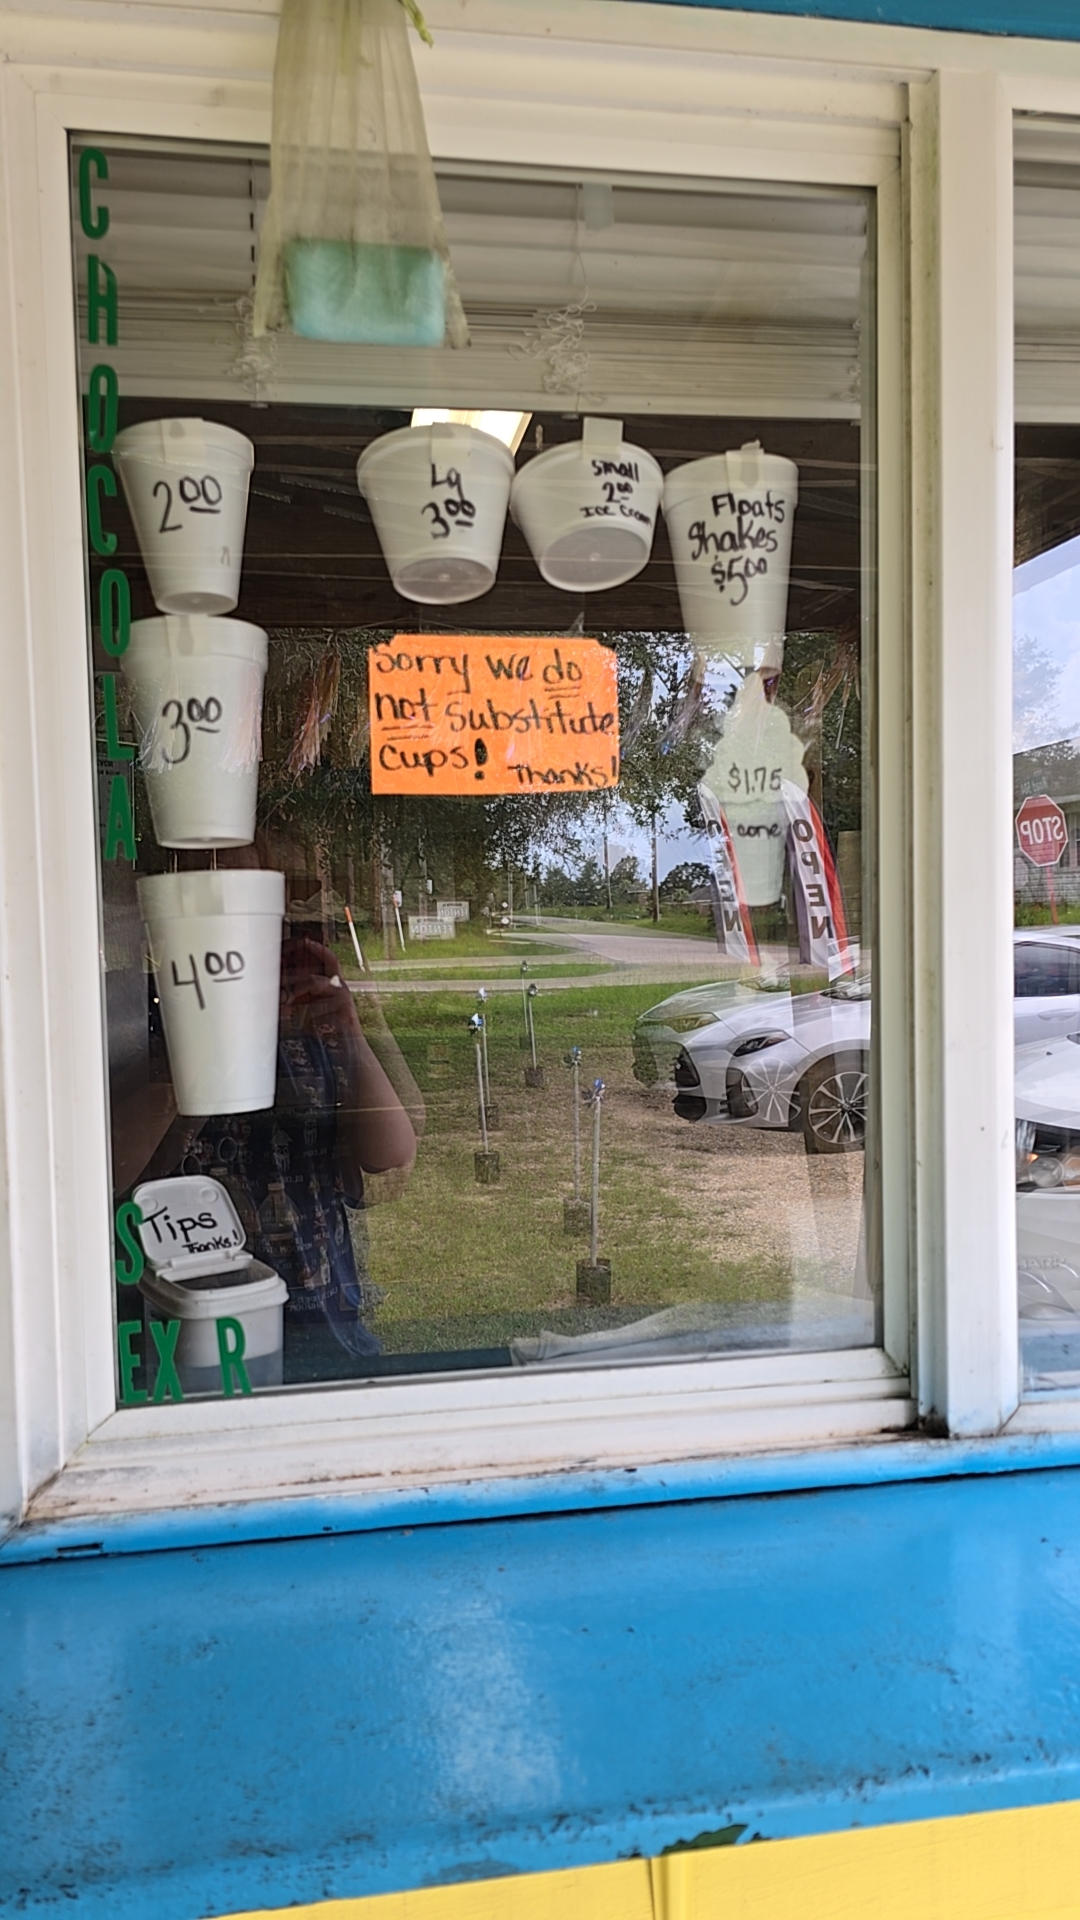 CHOCOLA
S
EX R
2.00
3.00
4.00
Lg
3.00
Small
2.00
Ice Cream
Floats
Shakes
$5.00
Sorry we do
not substitute
cups! Thanks!
$1.75
cone
OPEN
OPEN
STOP
FENTON
FENTON
Tips
Thanks!